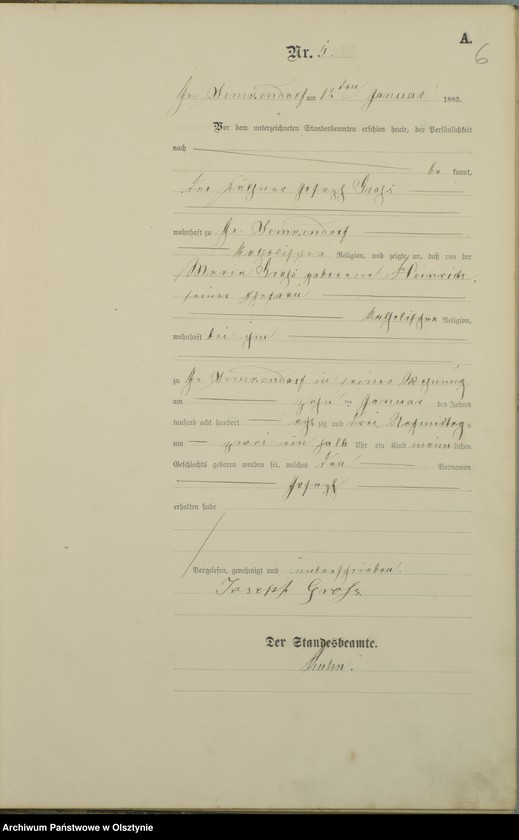 A.
6
Nr. 4.
Gr. am 12ten Januar 1883.
Vor dem unterzeichneten Standesbeamten erschien heute, der Persönlichkeit
nach
be kannt,
der Joseph Groß
wohnhaft zu Gr.
katholischer Religion, und zeigte an, daß von der
Maria Groß geborene Heinrich,
seiner Ehefrau
katholischer Religion,
wohnhaft bei ihm
zu Gr. in seiner Wohnung
am zehn ten Januar des Jahres
tausend acht hundert acht zig und drei Nachmittags
um zwei ein halb Uhr ein Kind männlichen
Geschlechts geboren worden sei, welches den Vornamen
Joseph
erhalten habe
Vorgelesen, genehmigt und unterschrieben.
Joseph Groß
Der Standesbeamte.
Archiwum Państwowe w Olsztynie